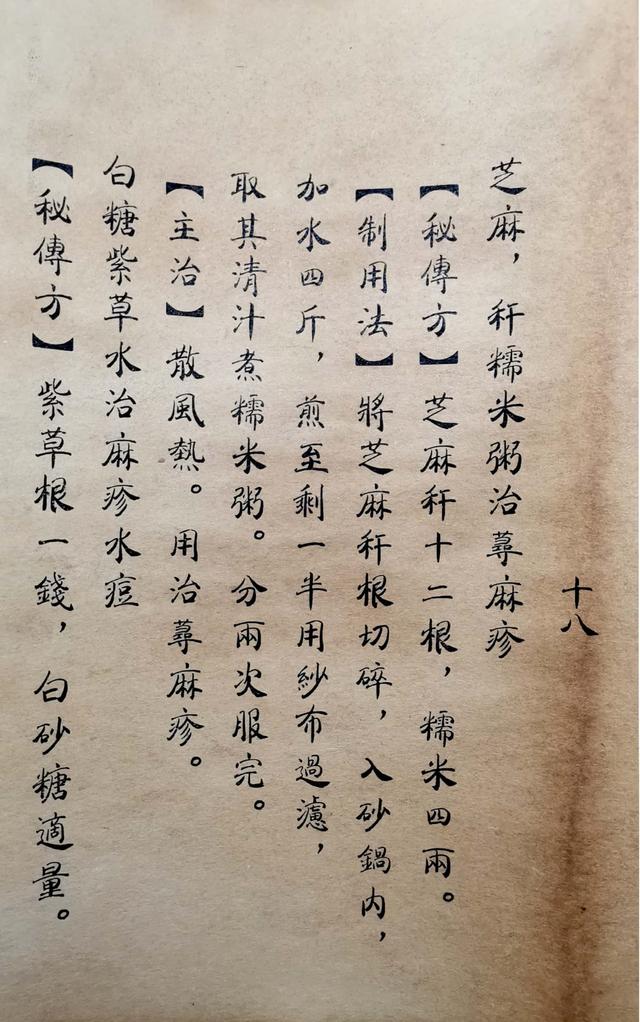 十八
芝麻，秆糯米粥治蕁麻疹
【秘傳方】芝麻秆十二根，糯米四兩。
【制用法】將芝麻秆根切碎，入砂鍋内，
加水四斤，煎至剩一半用紗布過濾，
取其清汁煮糯米粥。分兩次服完。
【主治】散風熱。用治蕁麻疹。
白糖紫草水治麻疹水痘
【秘傳方】紫草根一錢，白砂糖適量。